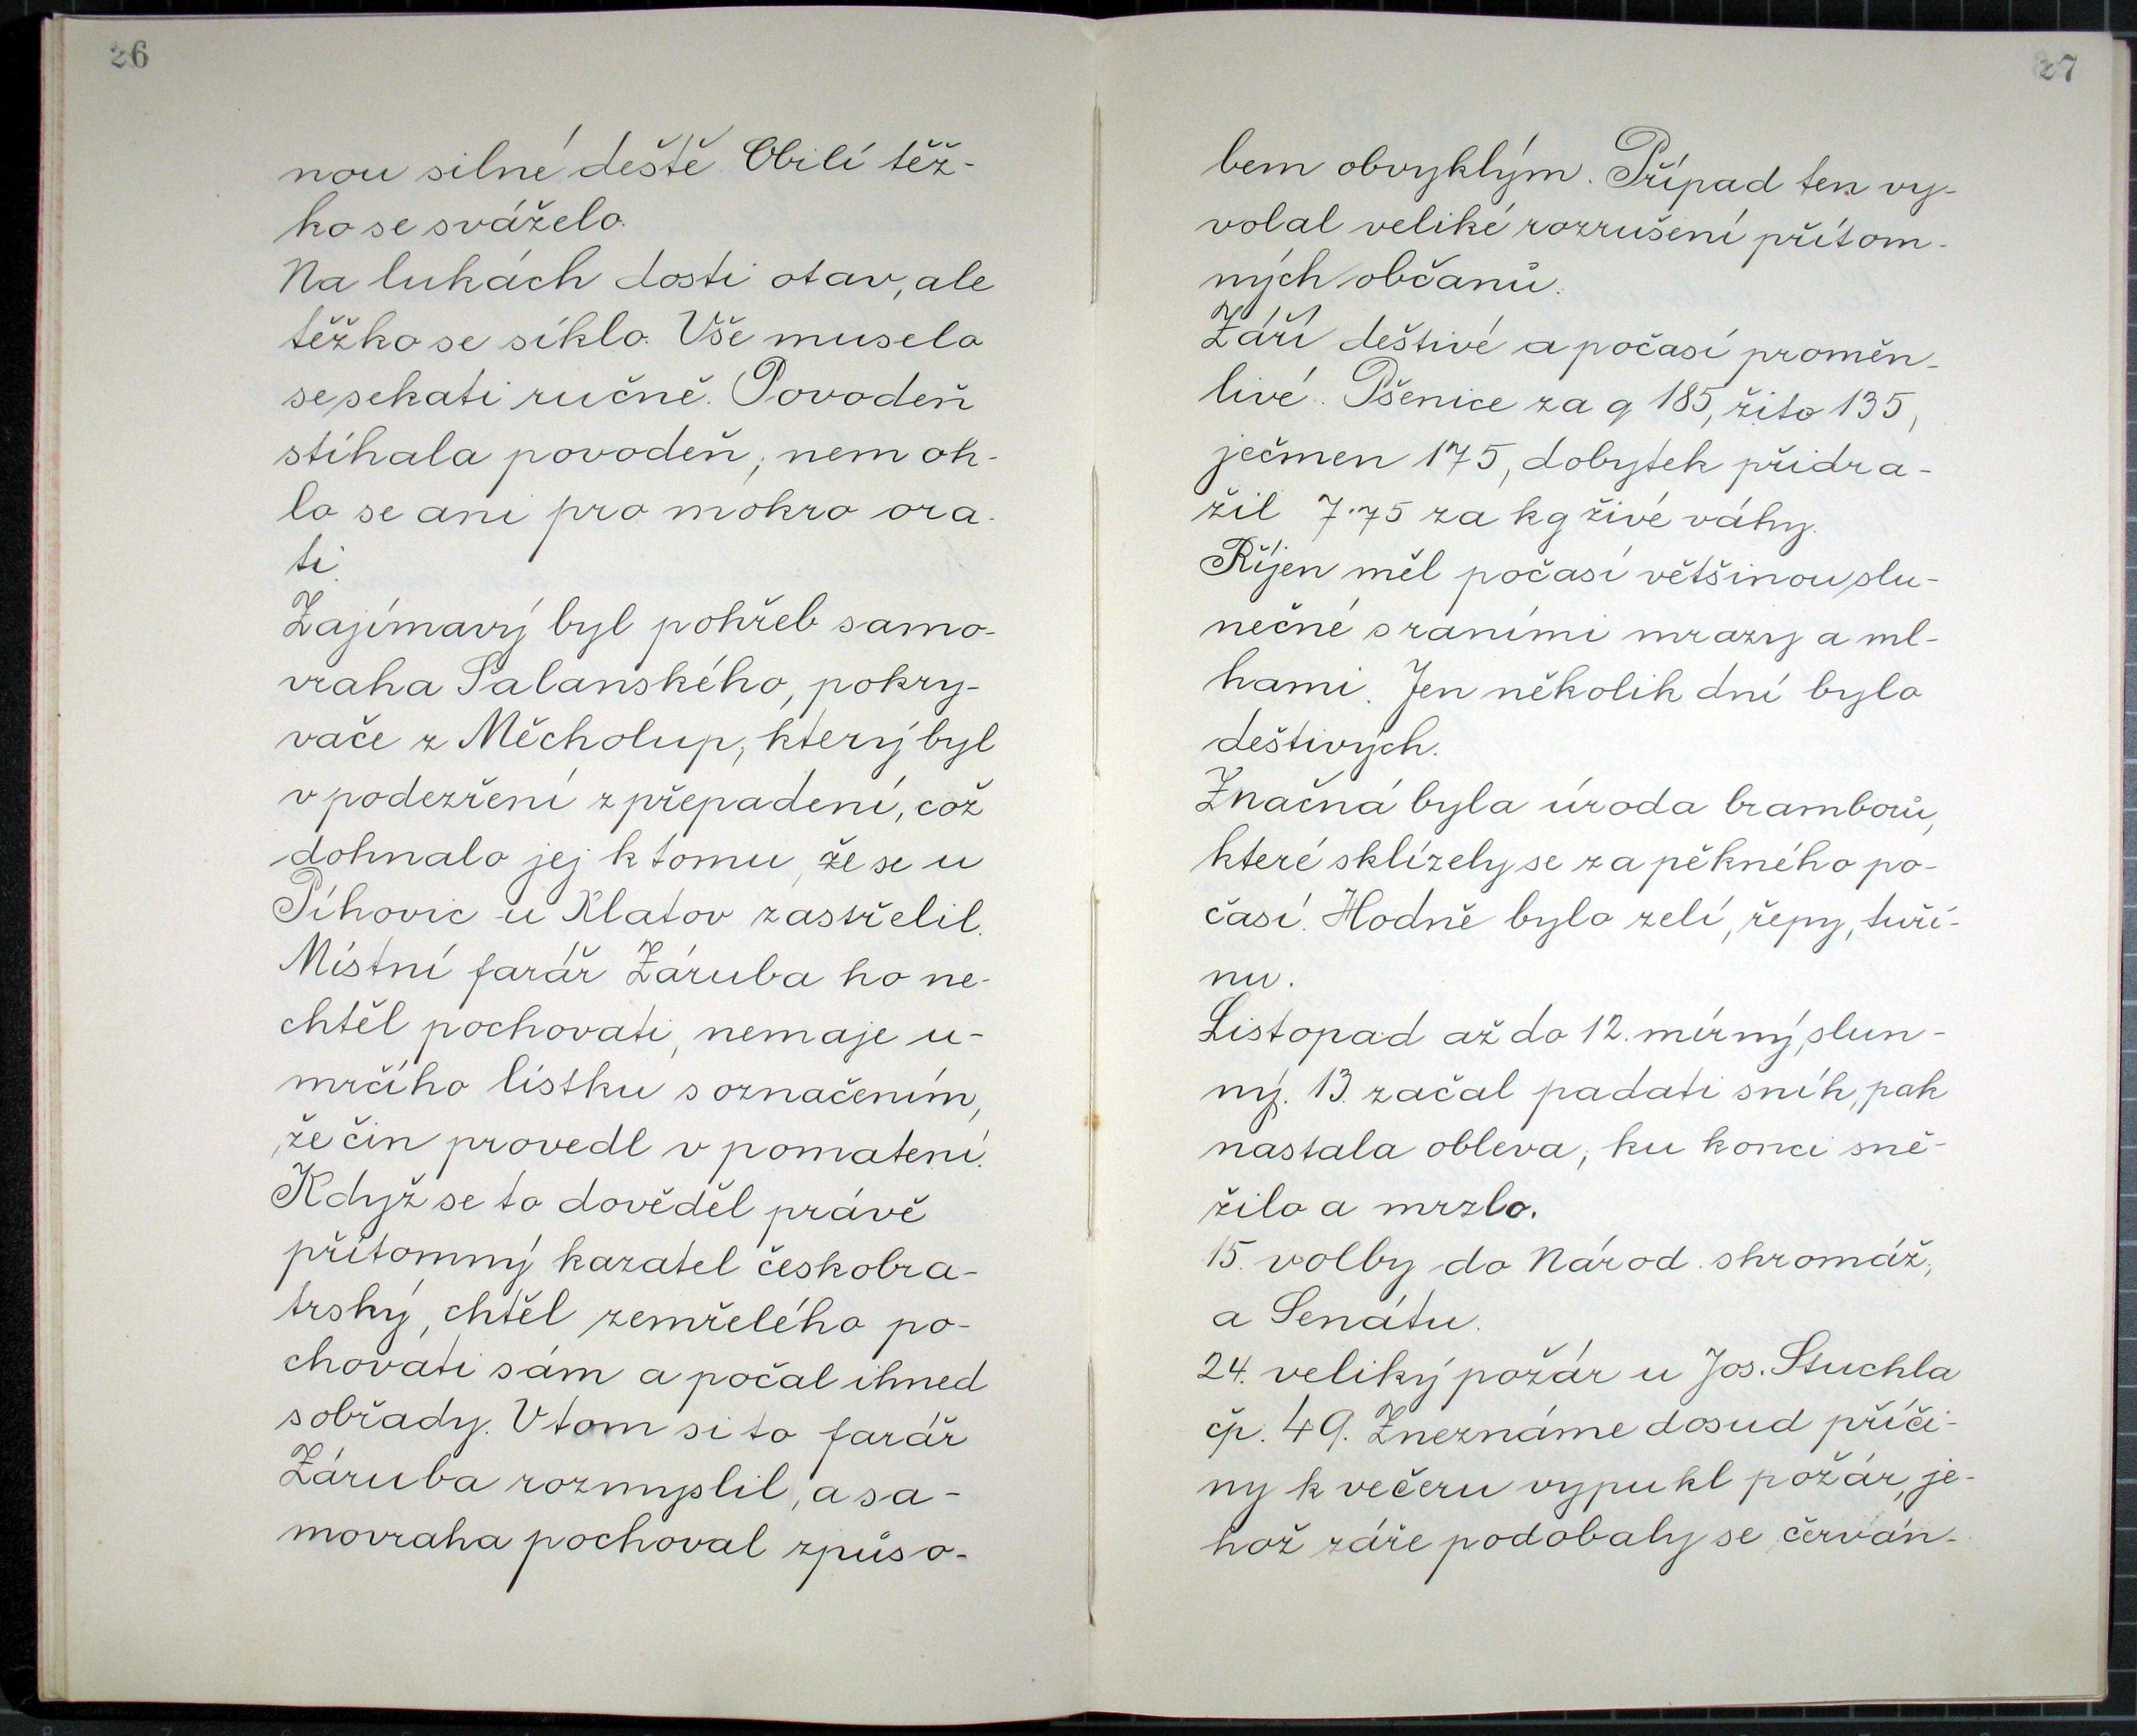 26
nou silné deště. Obilí těž-
ko se sváželo.
Na lukách dosti otav, ale
těžko se síklo. Vše muselo
se sekati ručně. Povodeň
stíhala povodeň, nemoh-
lo se ani pro mokro ora-
ti.
Zajímavý byl pohřeb samo-
vraha Šalanského, pokry-
vače z Měcholup, který byl
v podezření z přepadení, což
dohnalo jej k tomu, že se u
Píhovic u Klatov zastřelil.
Místní farář Záruba ho ne-
chtěl pochovati, nemaje u-
mrčího lístku s označením,
že čin provedl v pomatení.
Když se to dověděl právě
přítomný kazatel českobra-
trský, chtěl zemřelého po-
chovati sám a počal ihned
s obřady. V tom si to farář
Záruba rozmyslil, a sa-
movraha pochoval způso-
27
bem obvyklým. Případ ten vy-
volal veliké rozrušení přítom-
ných občanů.
Září deštivé a počasí proměn-
livé. Pšenice za q 185, žito 135,
ječmen 175, dobytek přidra-
žil 7.75 za kg živé váhy.
Říjen měl počasí většinou slu-
nečné s raními mrazy a ml-
hami. Jen několik dní bylo
deštivých.
Značná byla úroda bramborů,
které sklízely se za pěkného po-
časí. Hodně bylo zelí, řepy, tuří-
nu.
Listopad až do 12. mírný, slun-
ný. 13. začal padati sníh, pak
nastala obleva, ku konci sně-
žilo a mrzlo.
15. volby do Národ. shromáž.
a Senátu.
24. veliký požár u Jos. Stuchla
čp. 49. Z neznáme dosud příči-
ny k večeru vypukl požár, je-
hož záře podobaly se červán-